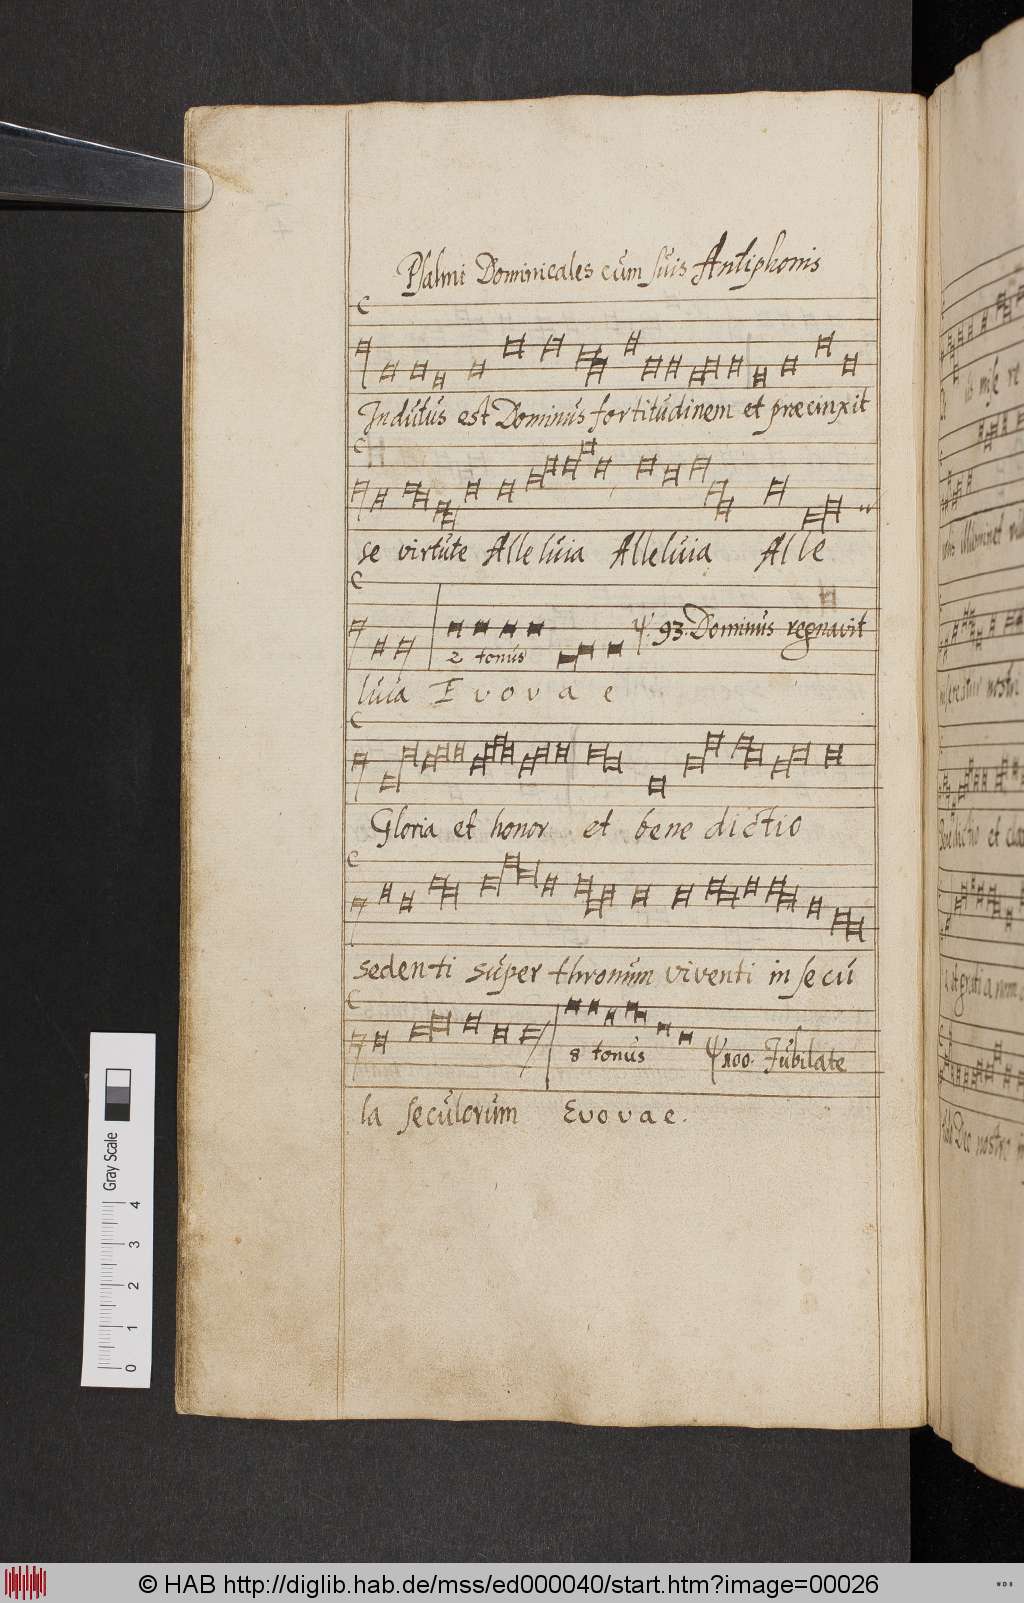 Psalmi Dominicales cum suis Antiphonis
Indutus est Dominus fortitudinem et præcinxit
se virtute Alleluia Alleluia Alle
2 tonus ψ. 93. Dominus regnavit
luia E v o v a e
Gloria et honor et bene dictio
sedenti super thronum viventi in secu
8 tonus ψ 100. Jubilate
la seculorum Evovae.
Gray Scale
0 1 2 3 4
© HAB http://diglib.hab.de/mss/ed000040/start.htm?image=00026